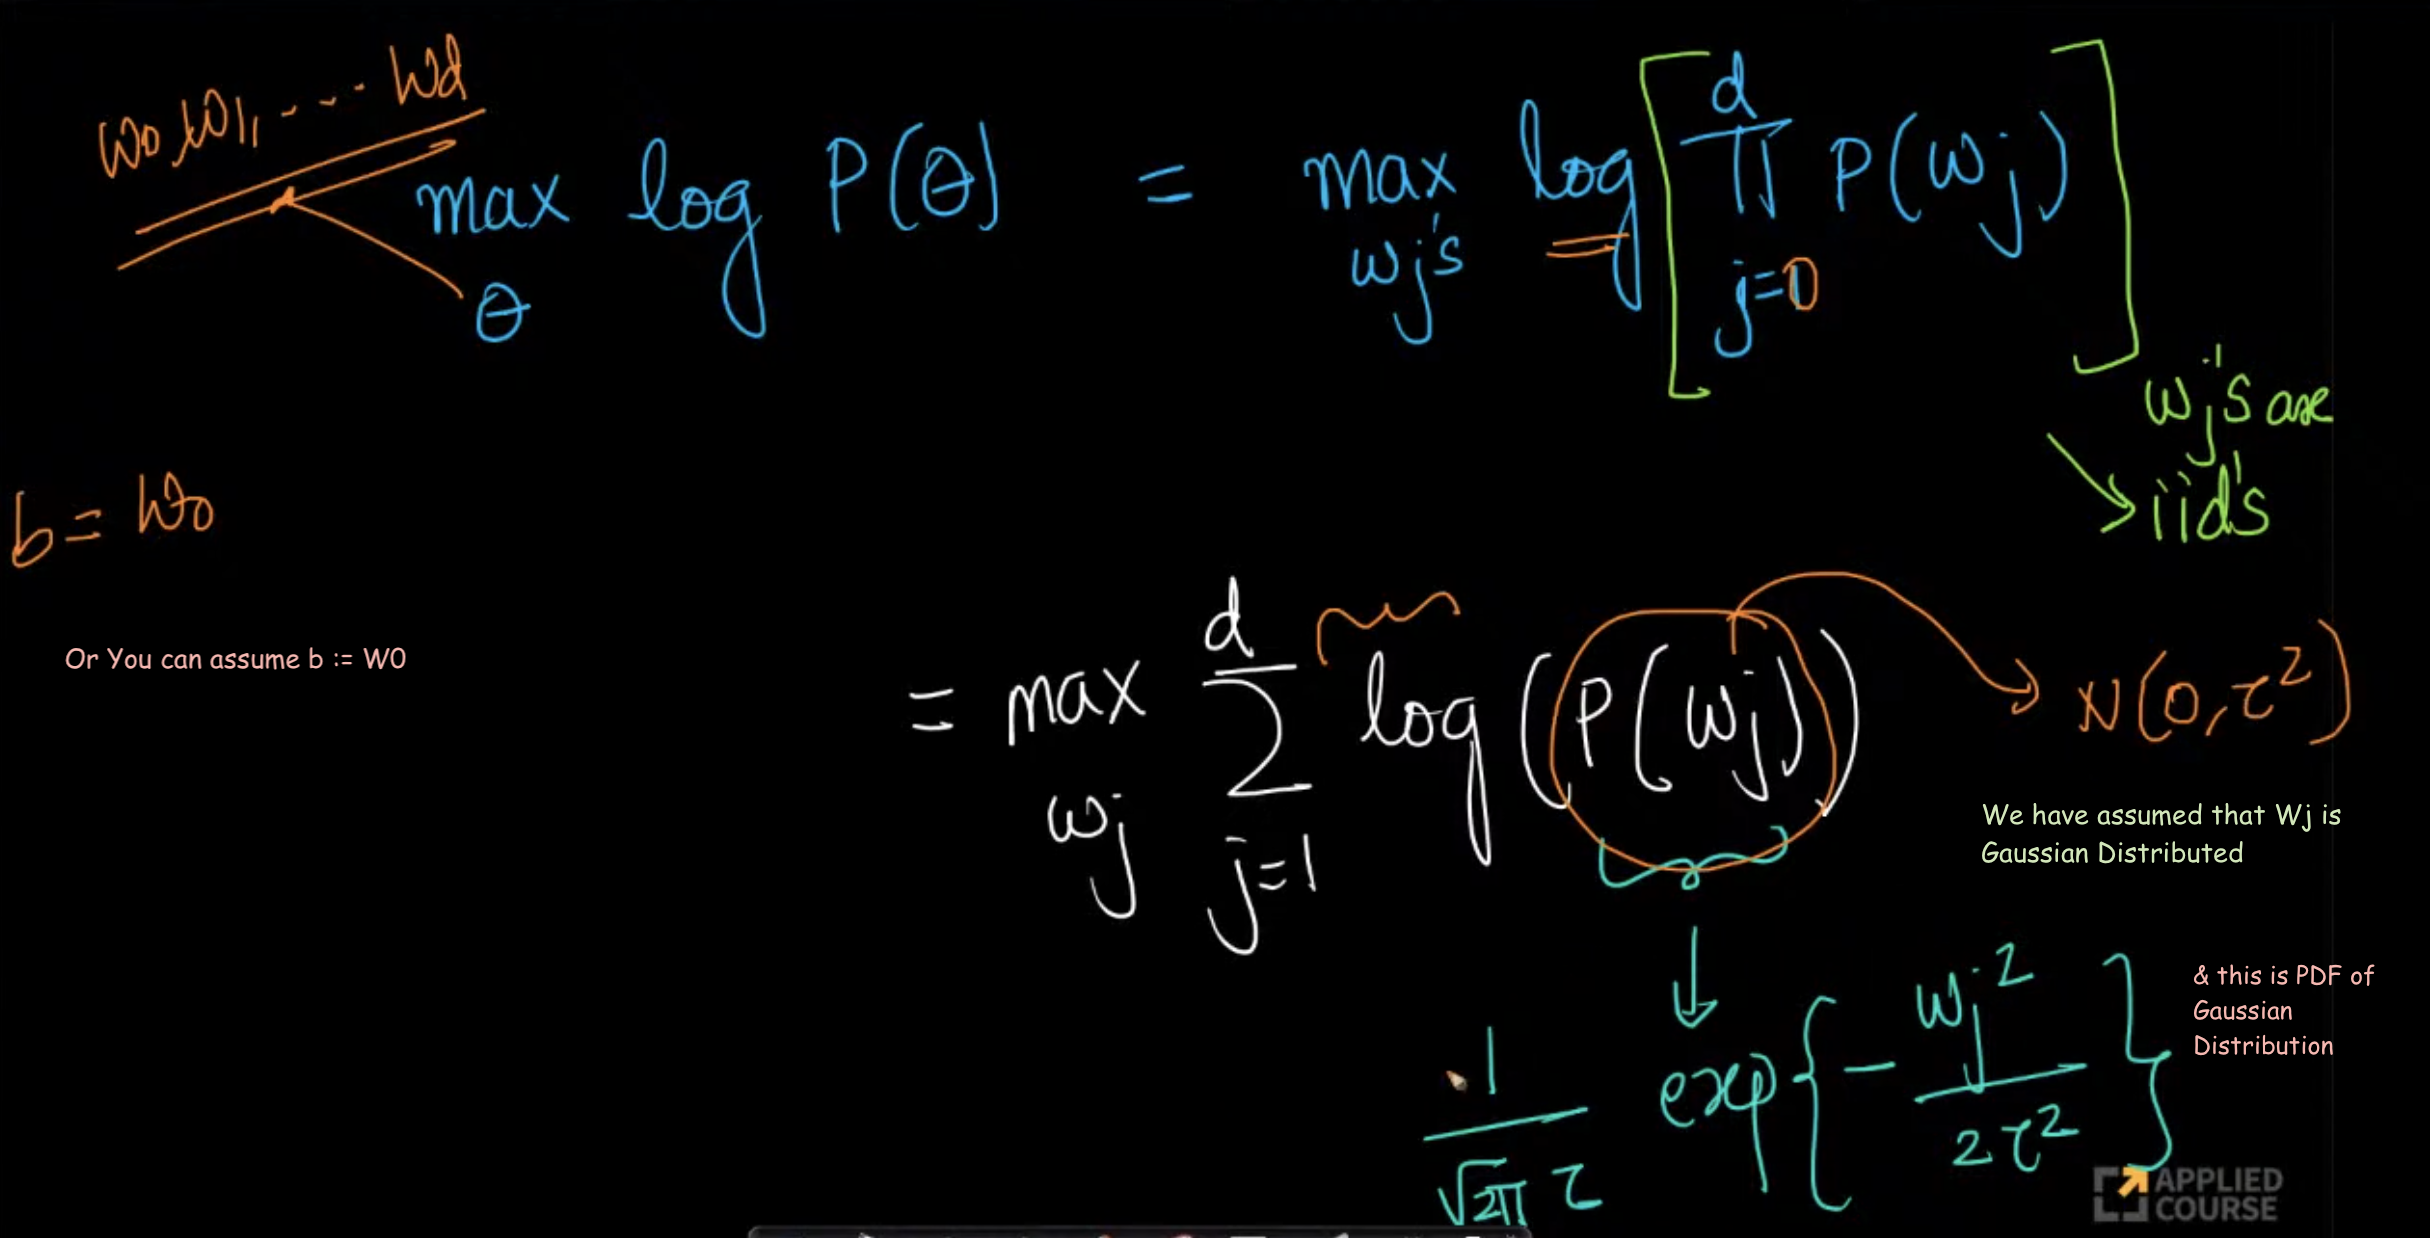 w0, w1, ---- wd
max log P(θ) = max log [ d ∏ j=0 P(wj) ]
θ wj's
wj's are
iid's
b = w0
Or You can assume b := W0
= max d ∑ j=1 log (P(wj)) → N(0, τ²)
wj
We have assumed that Wj is
Gaussian Distributed
1/√2π τ exp{ - wj²/2τ² }
& this is PDF of
Gaussian
Distribution
APPLIED
COURSE